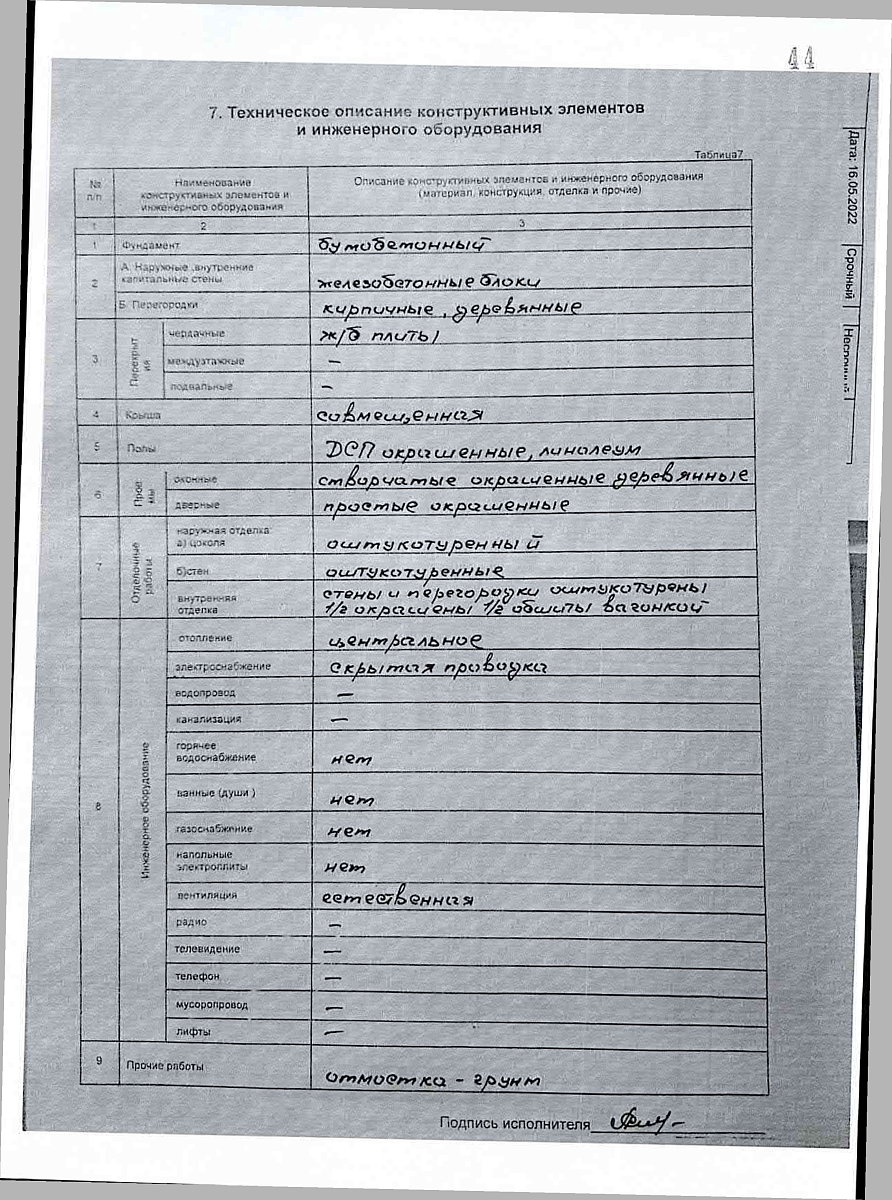 44
7. Техническое описание конструктивных элементов
и инженерного оборудования
Таблица7
№
п/п
Наименование
конструктивных элементов и
инженерного оборудования
Описание конструктивных элементов и инженерного оборудования
(материал, конструкция, отделка и прочие)
1 2 3
1 Фундамент бутобетонный
2 А. Наружные ,внутренние
капитальные стены железобетонные блоки
Б. Перегородки кирпичные, деревянные
3 Перекрыт
ия
чердачные ж/б плиты
междуэтажные –
подвальные –
4 Крыша совмещенная
5 Полы ДСП окрашенные, линолеум
6 Прое
мы
оконные створчатые окрашенные деревянные
дверные простые окрашенные
7 Отделочные
работы
наружная отделка:
а) цоколя оштукотуренный
б)стен оштукотуренные
внутренняя
отделка
стены и перегородки оштукотурены
1/2 окрашены 1/2 обшиты вагонкой
8 Инженерное оборудование
отопление центральное
электроснабжение скрытая проводка
водопровод –
канализация –
горячее
водоснабжение нет
ванные (души ) нет
газоснабжение нет
напольные
электроплиты нет
вентиляция естественная
радио –
телевидение –
телефон –
мусоропровод –
лифты –
9 Прочие работы отмостка - грунт
Подпись исполнителя
Дата: 16.05.2022
Срочный